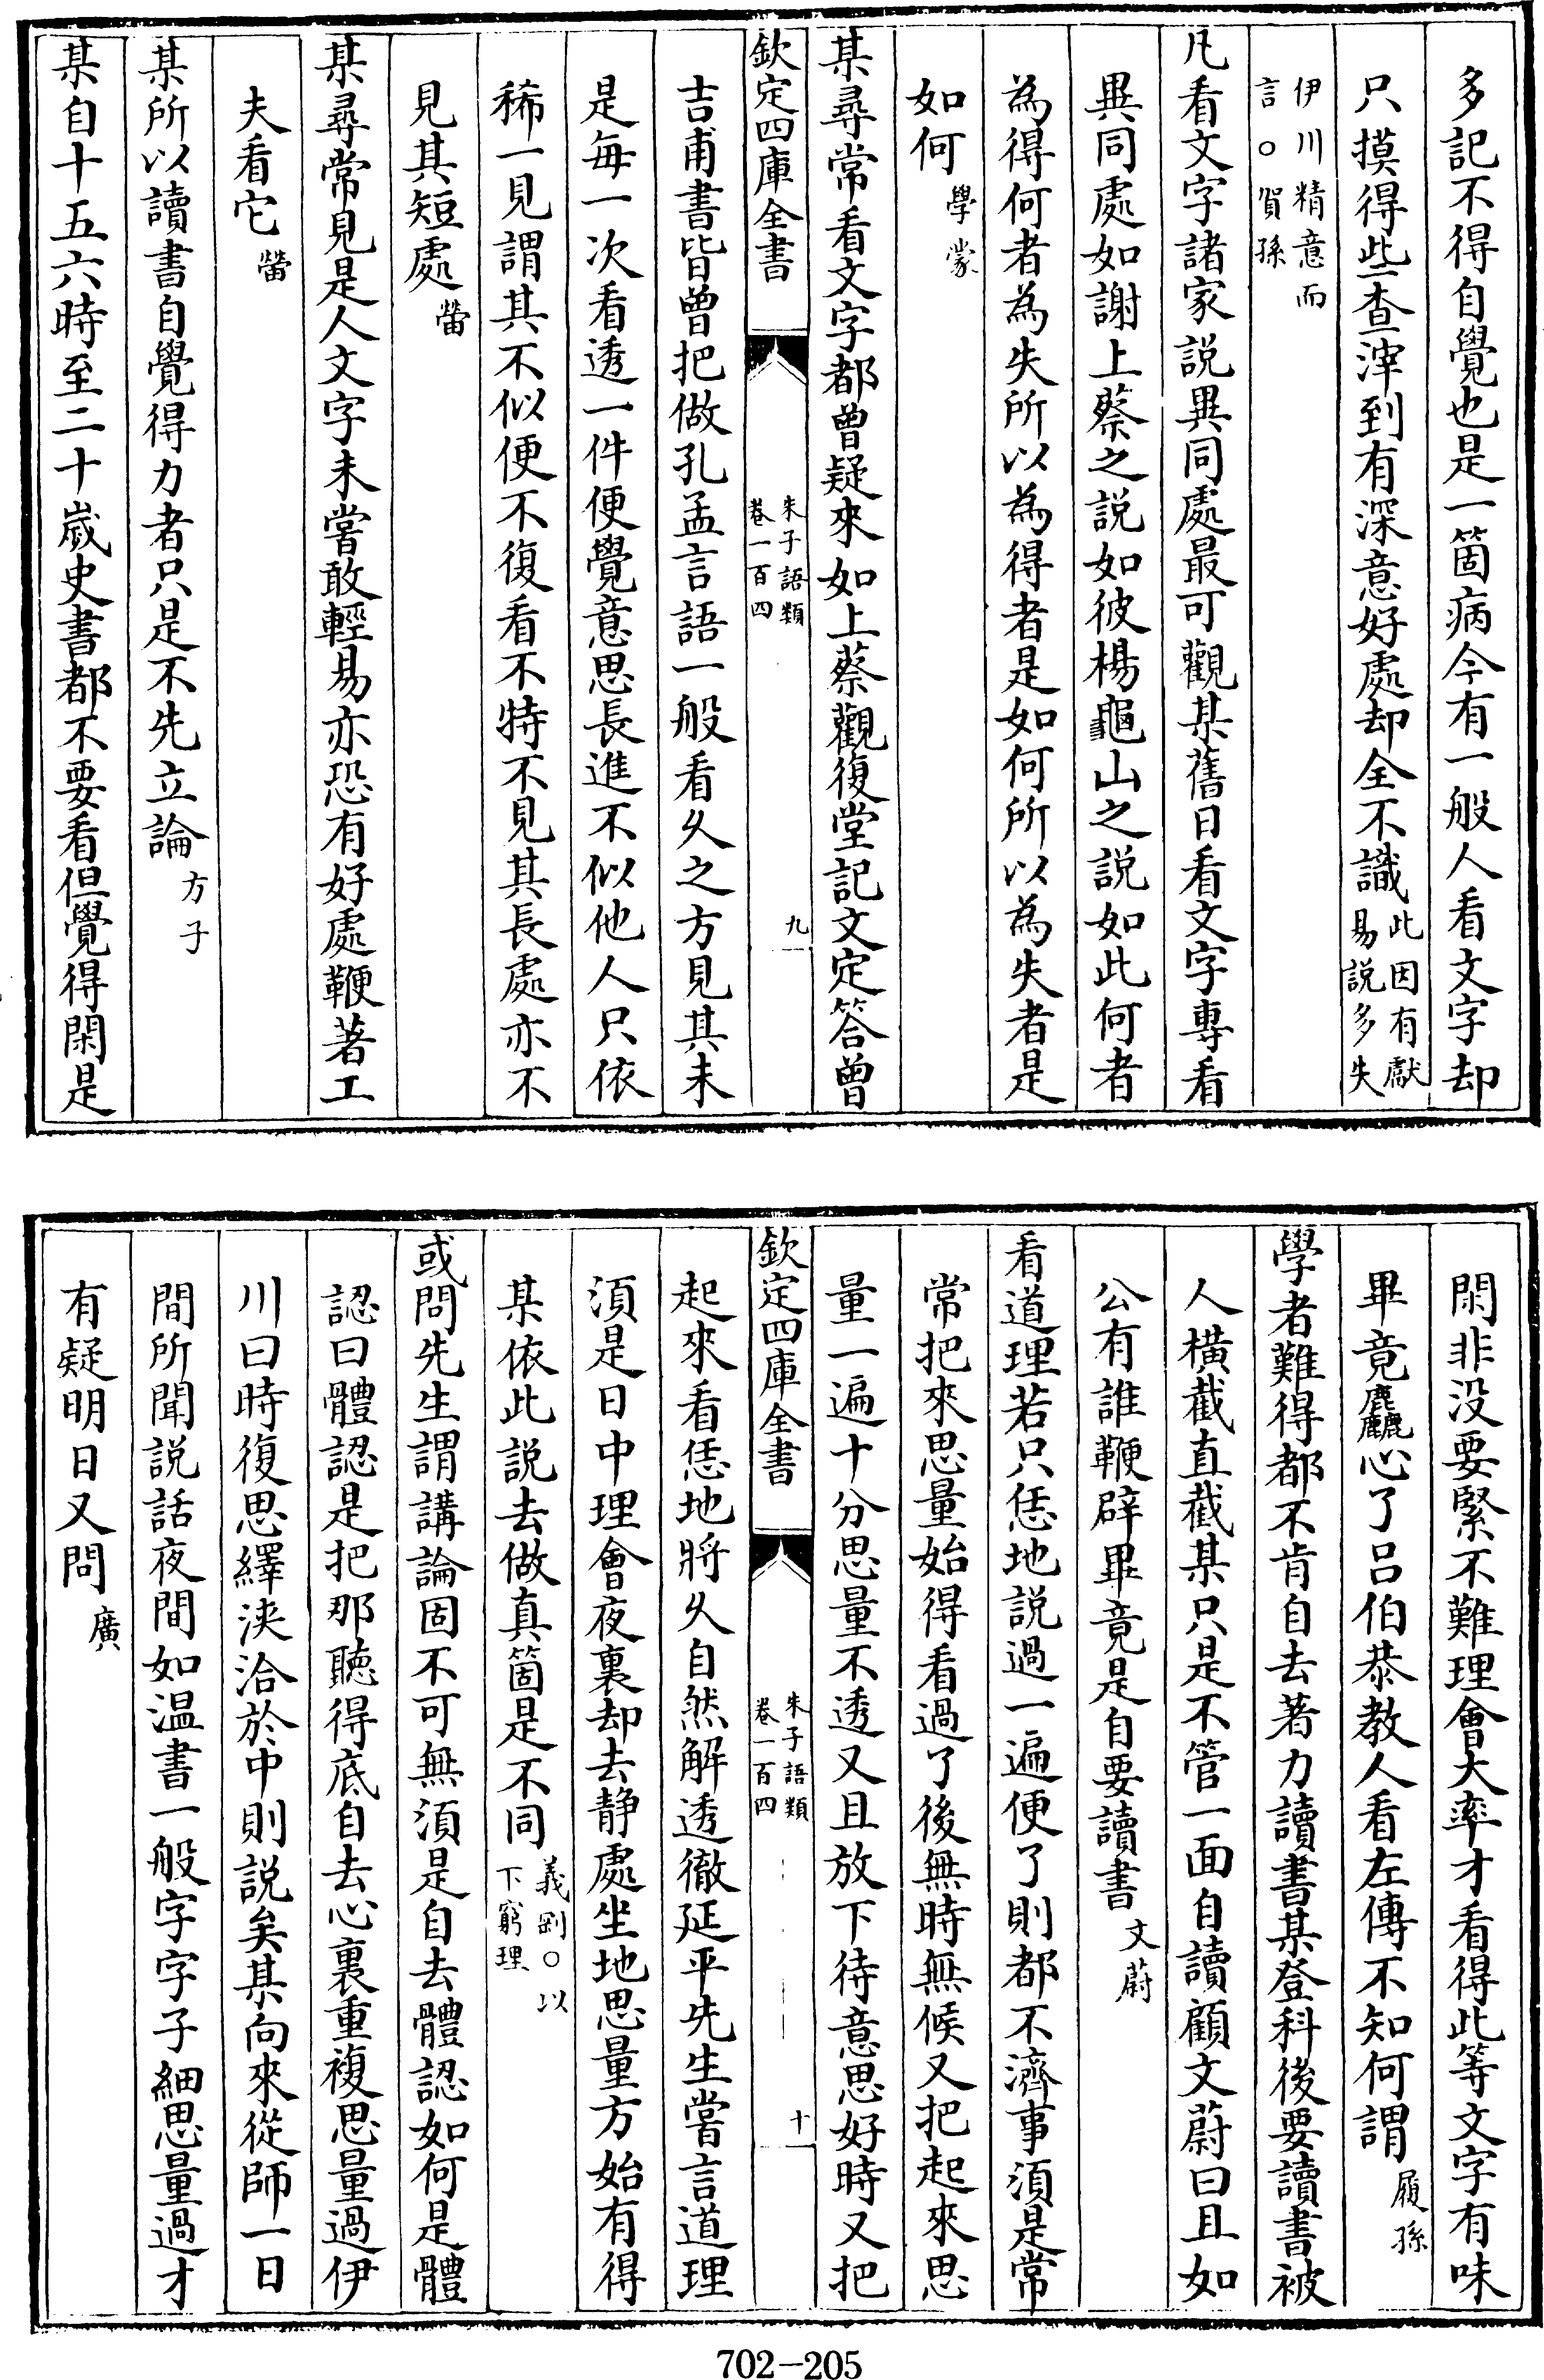 多記不得自覺也是一箇病今有一般人看文字却
只摸得些查滓到有深意好處却全不識此因有獻易説多失
伊川精意而言○賀孫
凡看文字諸家説異同處最可觀某舊日看文字專看
異同處如謝上蔡之説如彼楊龜山之説如此何者
為得何者為失所以為得者是如何所以為失者是
如何學蒙
某尋常看文字都曾疑來如上蔡觀復堂記文定答曾
欽定四庫全書
朱子語類
卷一百四
九
吉甫書皆曾把做孔孟言語一般看乆之方見其未
是每一次看透一件便覺意思長進不似他人只依
稀一見謂其不似便不復看不特不見其長處亦不
見其短處㽦
某尋常見是人文字未嘗敢輕易亦恐有好處鞭著工
夫看它㽦
某所以讀書自覺得力者只是不先立論方子
某自十五六時至二十歲史書都不要看但覺得閑是
閑非沒要緊不難理會大率才看得此等文字有味
畢竟麤心了吕伯恭教人看左傳不知何謂履孫
學者難得都不肯自去著力讀書某登科後要讀書被
人橫截直截某只是不管一面自讀顧文蔚曰且如
公有誰鞭辟畢竟是自要讀書文蔚
看道理若只恁地説過一遍便了則都不濟事須是常
常把來思量始得看過了後無時無候又把起來思
量一遍十分思量不透又且放下待意思好時又把
欽定四庫全書
朱子語類
卷一百四
十
起來看恁地將乆自然解透徹延平先生嘗言道理
須是日中理會夜裏却去静處坐地思量方始有得
某依此説去做真箇是不同義剛○以下窮理
或問先生謂講論固不可無須是自去體認如何是體
認曰體認是把那聽得底自去心裏重複思量過伊
川曰時復思繹浹洽於中則説矣某向來從師一日
間所聞説話夜間如温書一般字字子細思量過才
有疑明日又問廣
702-205